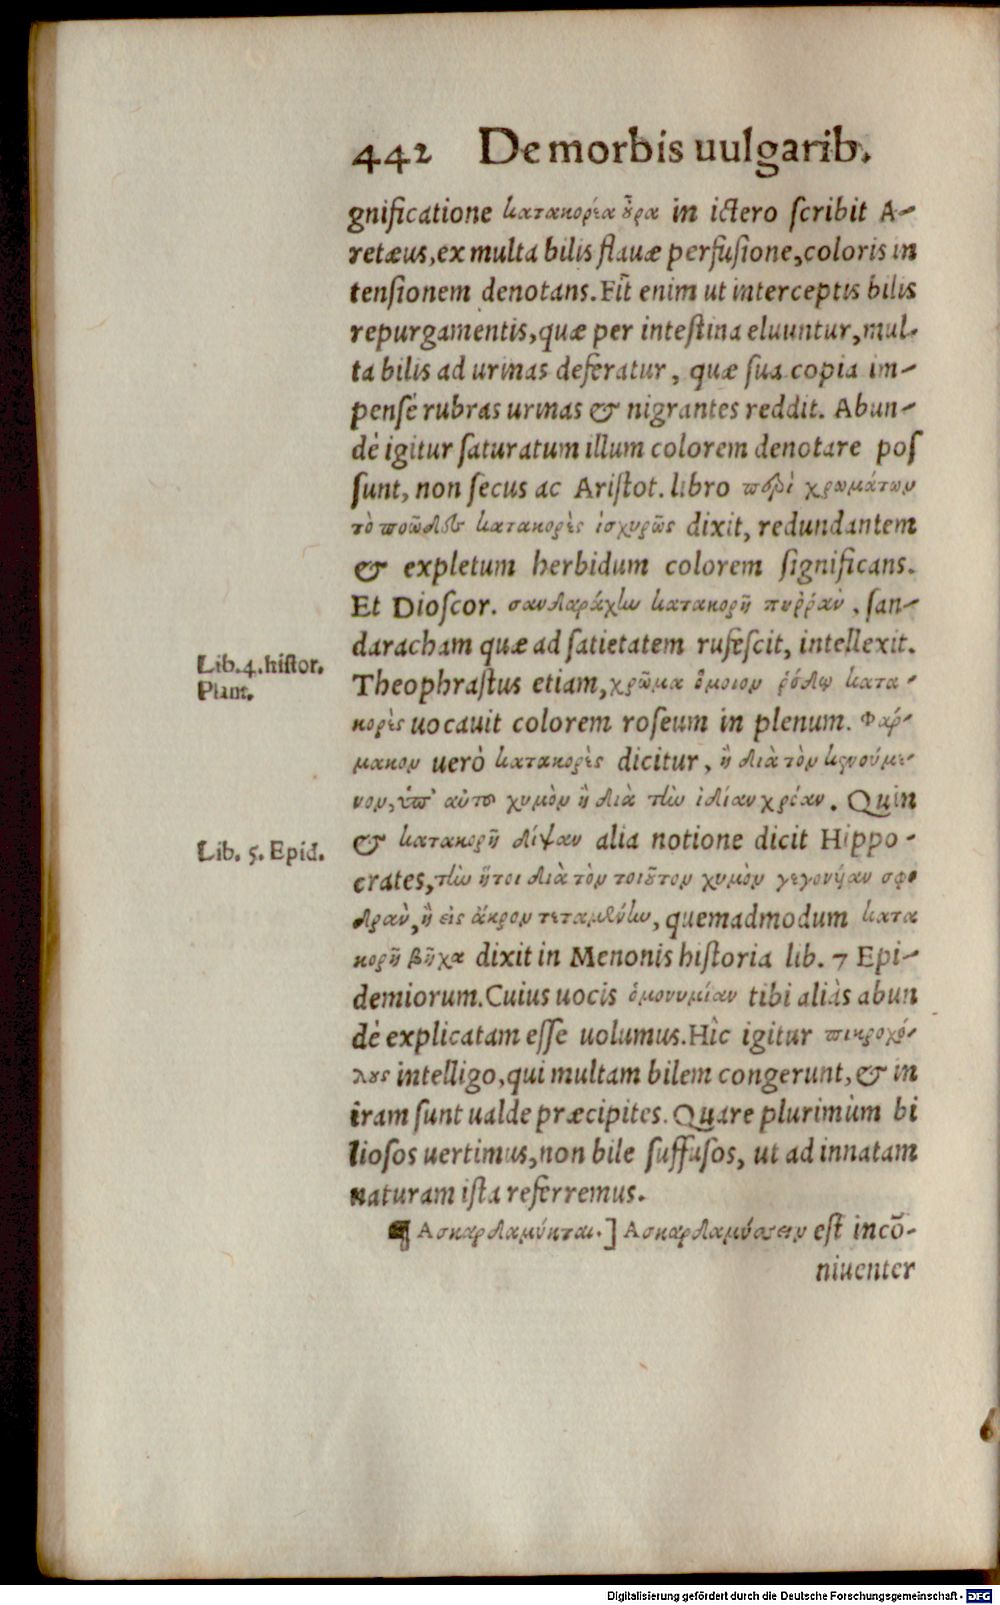 442 De morbis uulgarib.
gnificatione κατακορέα ȣ̃ρα in ictero ſcribit A-
retæus, ex multa bilis flauæ perfuſione, coloris in
tenſionem denotans. Fit enim ut interceptis bilis
repurgamentis, quæ per inteſtina eluuntur, mul-
ta bilis ad urinas deferatur, quæ ſua copia im-
penſè rubras urinas & nigrantes reddit. Abun-
dè igitur ſaturatum illum colorem denotare poſ
ſunt, non ſecus ac Ariſtot. libro περὶ χρωμάτων
τὸ ποῶδες κατακορὲς ἰσχυρῶς dixit, redundantem
& expletum herbidum colorem ſignificans.
Et Dioſcor. σανδαράχlω κατακορῆ πυῤῥὰν, ſan-
daracham quæ ad ſatietatem rufeſcit, intellexit.
Lib. 4. hiſtor.
Plant.
Theophraſtus etiam, χρῶμα ὅμοιον ῥόδῳ κατα-
κορὲς uocauit colorem roſeum in plenum. Φαρ-
μακον uerò κατακορὲς dicitur, ἢ διὰ τὸν κενούμε-
νον, ὑπ' αὐτȣ χυμὸν ἢ διὰ τlὼ ἰδίαν χρόαν. Quin
Lib. 5. Epid.
& κατακορῆ δίψαν alia notione dicit Hippo-
crates, τlὼ ἤτοι διὰ τὸν τοιȣ̃τον χυμὸν γεγονῆαν σφο
δρὰν, ἢ εἰς ἄκρον τεταμένlω, quemadmodum κατα
κορῆ βῆχα dixit in Menonis hiſtoria lib. 7 Epi-
demiorum. Cuius uocis ὁμονυμίαν tibi aliàs abun
dè explicatam eſſe uolumus. Hîc igitur πικροχό-
λȣς intelligo, qui multam bilem congerunt, & in
iram ſunt ualde præcipites. Quare plurimùm bi
lioſos uertimus, non bile ſuffuſos, ut ad innatam
naturam iſta referremus.
¶ Ασκαρδαμύκται.] Ασκαρδαμύσσειν eſt incō-
niuenter
Digitalisierung gefördert durch die Deutsche Forschungsgemeinschaft - DFG